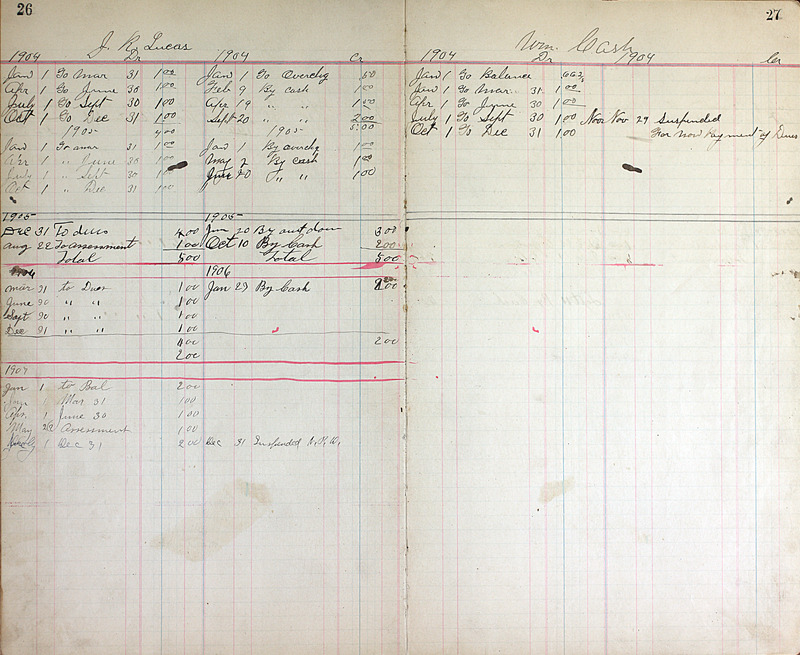 26
J. R. Lucas
1904 Dr 1904 Cr
Jan 1 To Mar 31 1 00 Jan 1 To Overchg 50
Apr 1 To June 30 1 00 Feb 9 By cash 1 00
July 1 To Sept 30 1 00 Apr 19 " " 1 00
Oct 1 To Dec 31 1 00 Sept 20 " " 2 00
1905 4 00 1905 5 00
Jan 1 To mar 31 1 00 Jan 1 By overchg 1 00
Apr 1 " June 30 1 00 May 2 By cash 1 00
July 1 " Sept 30 1 00 June 20 " " 1 00
Oct 1 " Dec 31 1 00
1905 1905
Dec 31 To dues 4 00 Jun 20 By amt down 3 00
Aug 22 To assessment 1 00 Oct 10 By Cash 2 00
Total 5 00 Total 5 00
1906
Mar 31 to Dues 1 00 Jan 29 By Cash 2 00
June 30 " " 1 00
Sept 30 " " 1 00
Dec 31 " " 1 00
4 00 2 00
2 00
1907
Jan 1 to Bal 2 00
Mar 31 1 00
Apr 1 June 30 1 00
May 22 Assessment 1 00
July 1 Dec 31 2 00 Dec 31 Suspended
27
Wm. Cash
1904 Dr 1904 Cr
Jan 1 To Balance
Jan 1 To Mar 31 1 00
Apr 1 To June 30 1 00
July 1 To Sept 30 1 00 Nov 29 Suspended
Oct 1 To Dec 31 1 00 For Non Payment of Dues